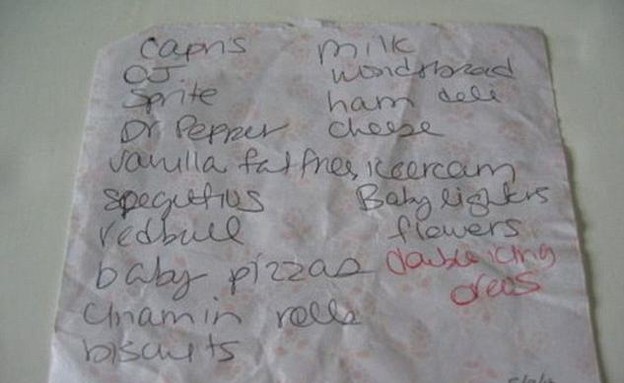 capris milk
OJ wondrbread
Sprite ham deli
Dr Pepper cheese
vanilla fat free icecream
spegettios Baby lighters
redbull flowers
baby pizzas double icing
oreos
cinamin rolls
biscuits